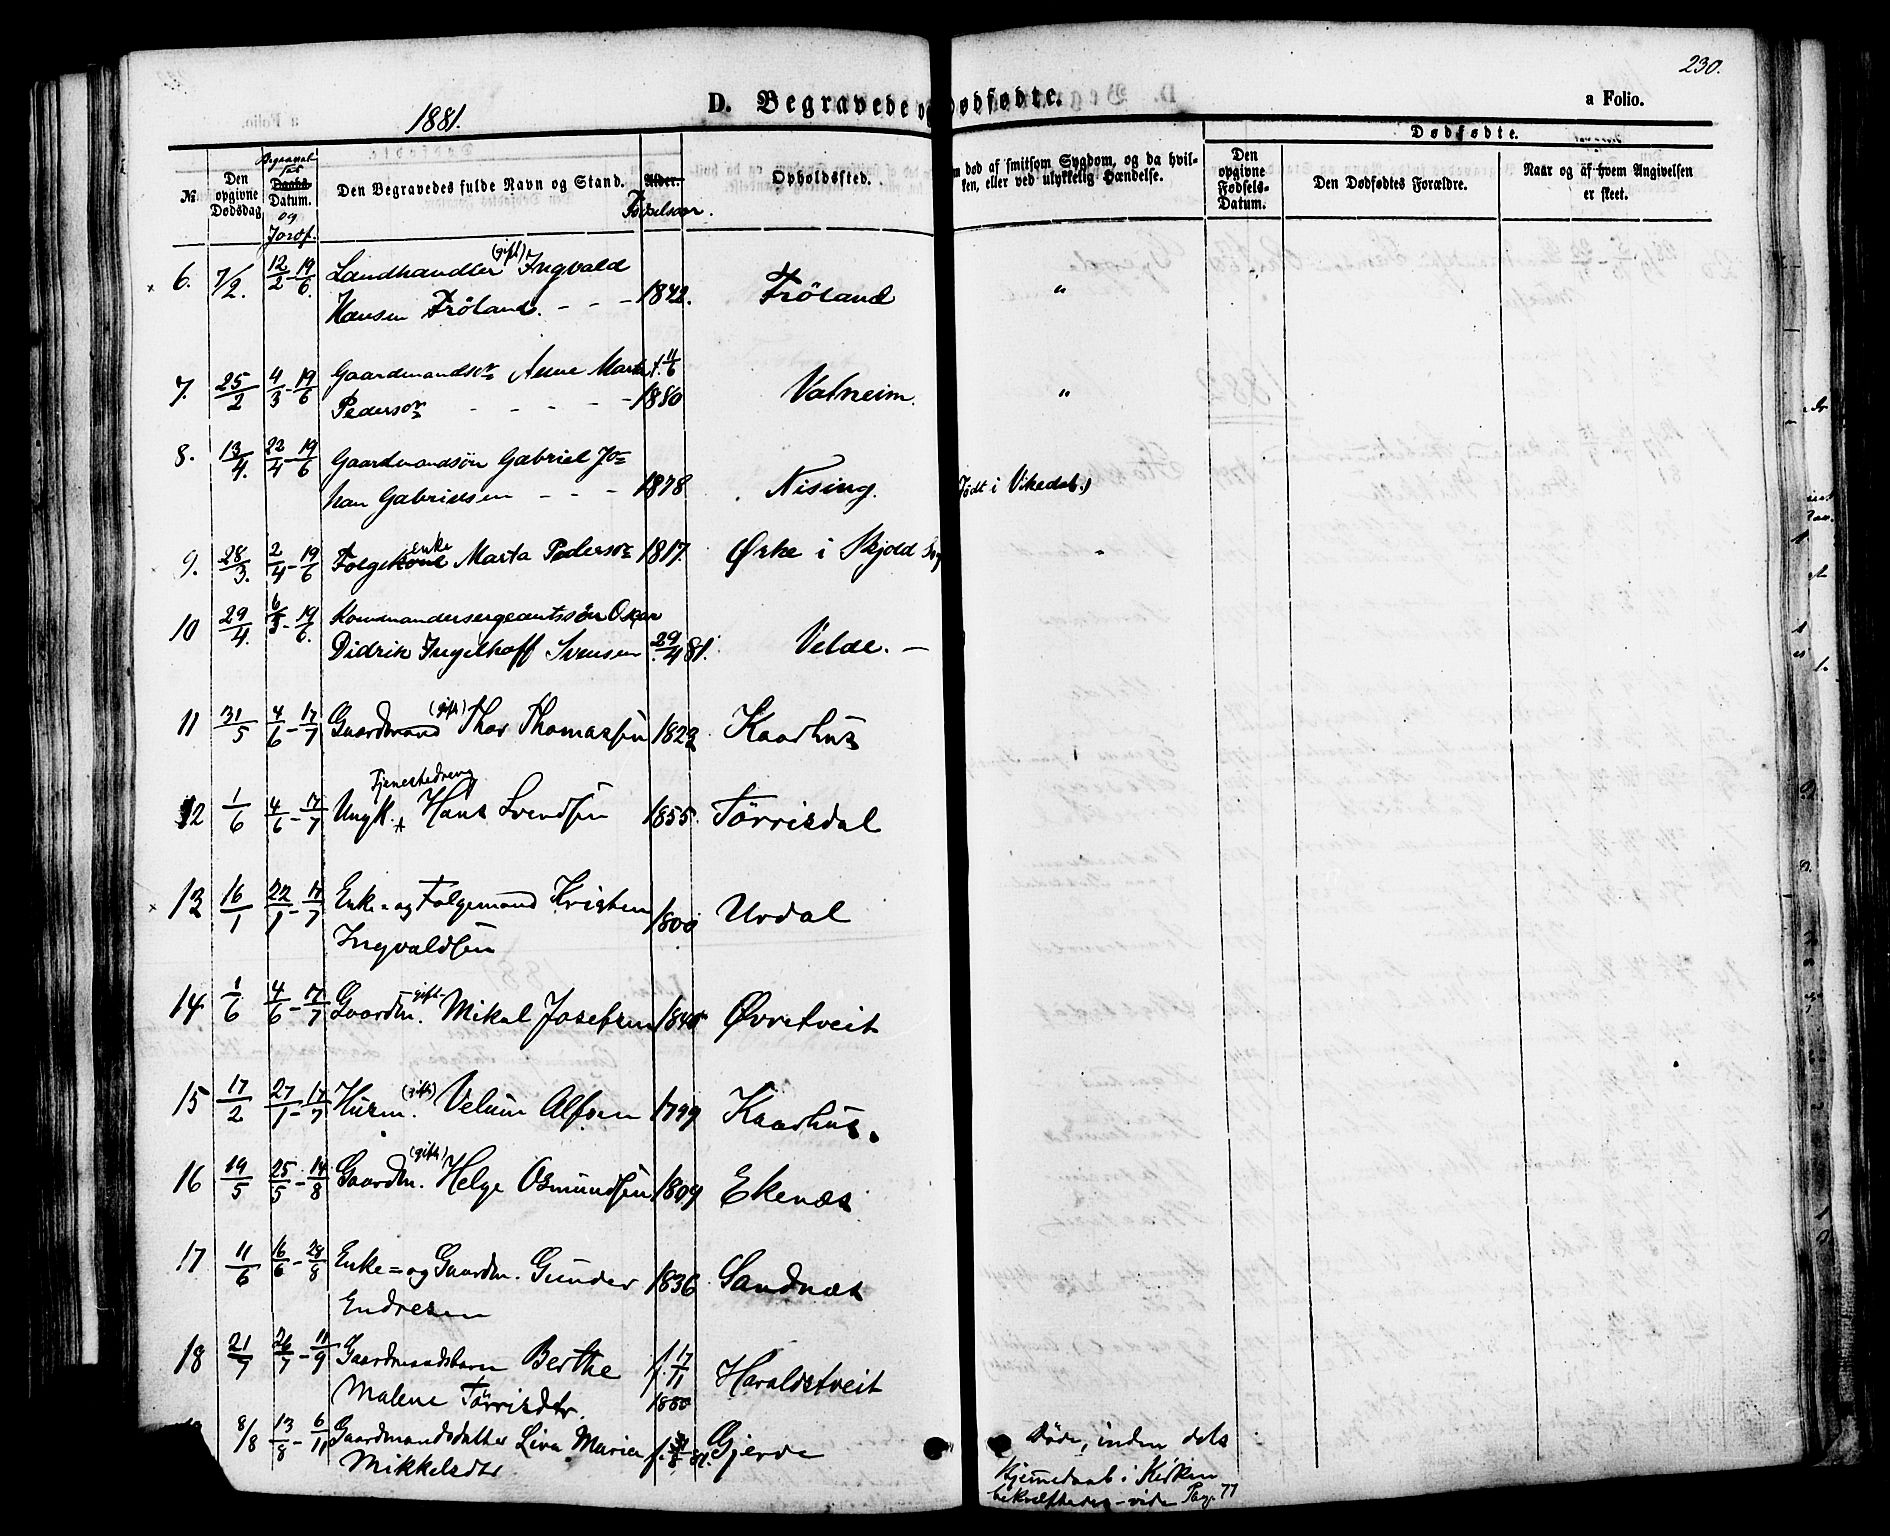 230.
1881.
D. Begravede og Dødfødte.
a Folio.
Dødfødte.
No.
Den opgivne Dødsdag
Begravel ses Daabs Datum. og Jordf.
Den Begravedes fulde Navn og Stand.
Alder. Fødselsaar.
Opholdssted.
m død af smitsom Sygdom, og da hvil-
ken, eller ved ulykkelig Hændelse.
Den opgivne Fødsels-Datum.
Den Dødfødtes Forældre.
Naar og af hvem Angivelsen
er skeet.
6. 7/2. 12/2 - 19/6. Landhandler (gift) Ingvald
Hansen Fröland. - - - 1842. Fröland "
7. 25/2 4/3 - 19/6 Gaardmandsdr Anne Marta f. 11/6
Pedersdr - - - - - 1880 Vatneim. "
8. 13/4. 22/4 - 19/6 Gaardmandsön Gabriel Jo=
han Gabrielsen - - - 1878 Nising. Født i Vikedal.)
9. 28/3. 2/4 - 19/6 Folgekone enke Marta Pedersdr 1817. Ørke i Skjold Sog
10 29/4. 6/5 - 19/6. Kommandersergeantssön Oskar
Didrik Ingelhoff Svensen 29/4 81. Velde. -
11 31/5 4/6 - 17/7 Gaardmand (gift) Thor Thomassen 1822 Kaarhus
12 1/6 4/6 - 17/7 Ungk. Tjenestedreng Hans Svendsen 1855. Törrisdal
13 16/1 22/1 - 17/7 Enke- og Folgemand Kristen 1800 Urdal
Ingvaldsen
14 1/6 4/6 - 17/7 Gaardm. gift Mikal Josefsen 1840 Øvretveit
15 17/2 27/1 - 17/7 Husm. (gift) Velum Alfsen 1799 Kaarhus.
16 19/5 25/5 - 14/8 Gaardm. (gift) Helge Osmundsen 1809 Ekenæs
17 11/6 16/6 - 28/8 Enke= og Gaardm. Gunder 1836 Sandnæs
Endresen
18 21/7 26/7 - 11/9 Gaardmandsbarn Berthe f. 17/11
Malene Törrisdtr. 1880 Haraldstveit
8/8 13/8 - 6/11 Gaardmandsdatter Liva Maria Gjerde
Mikkelsdtr
Döde, inden dets
Hjemmedaab i Kirken
bekræftedes - vide Pag. 77